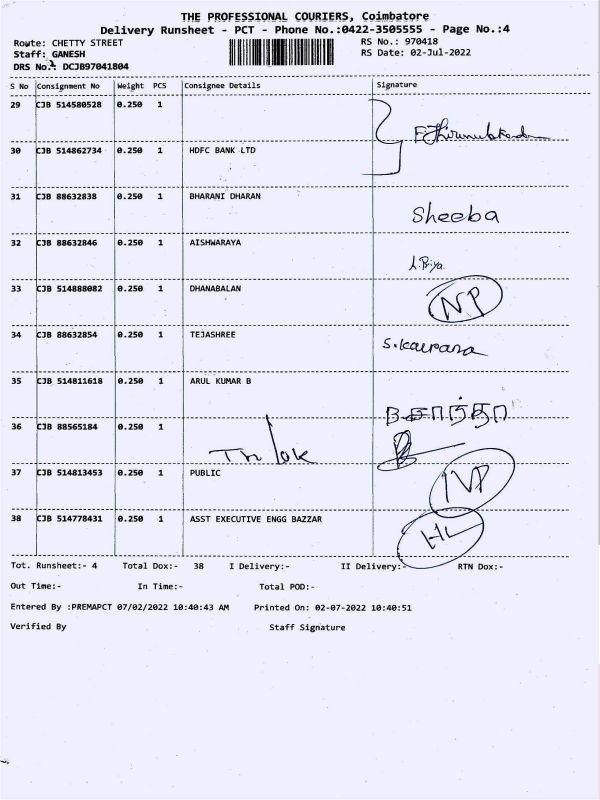 THE PROFESSIONAL COURIERS, Coimbatore
Delivery Runsheet - PCT - Phone No.:0422-3505555 - Page No.:4
Route: CHETTY STREET RS No.: 970418
Staff: GANESH RS Date: 02-Jul-2022
DRS No.: DCJB97041804
S No Consignment No Weight PCS Consignee Details Signature
29 CJB 514580528 0.250 1
30 CJB 514862734 0.250 1 HDFC BANK LTD
31 CJB 88632838 0.250 1 BHARANI DHARAN Sheeba
32 CJB 88632846 0.250 1 AISHWARAYA
33 CJB 514888082 0.250 1 DHANABALAN NP
34 CJB 88632854 0.250 1 TEJASHREE
35 CJB 514811618 0.250 1 ARUL KUMAR B
36 CJB 88565184 0.250 1
37 CJB 514813453 0.250 1 PUBLIC NP
38 CJB 514778431 0.250 1 ASST EXECUTIVE ENGG BAZZAR HL
Tot. Runsheet:- 4 Total Dox:- 38 I Delivery:- II Delivery:- RTN Dox:-
Out Time:- In Time:- Total POD:-
Entered By :PREMAPCT 07/02/2022 10:40:43 AM Printed On: 02-07-2022 10:40:51
Verified By Staff Signature